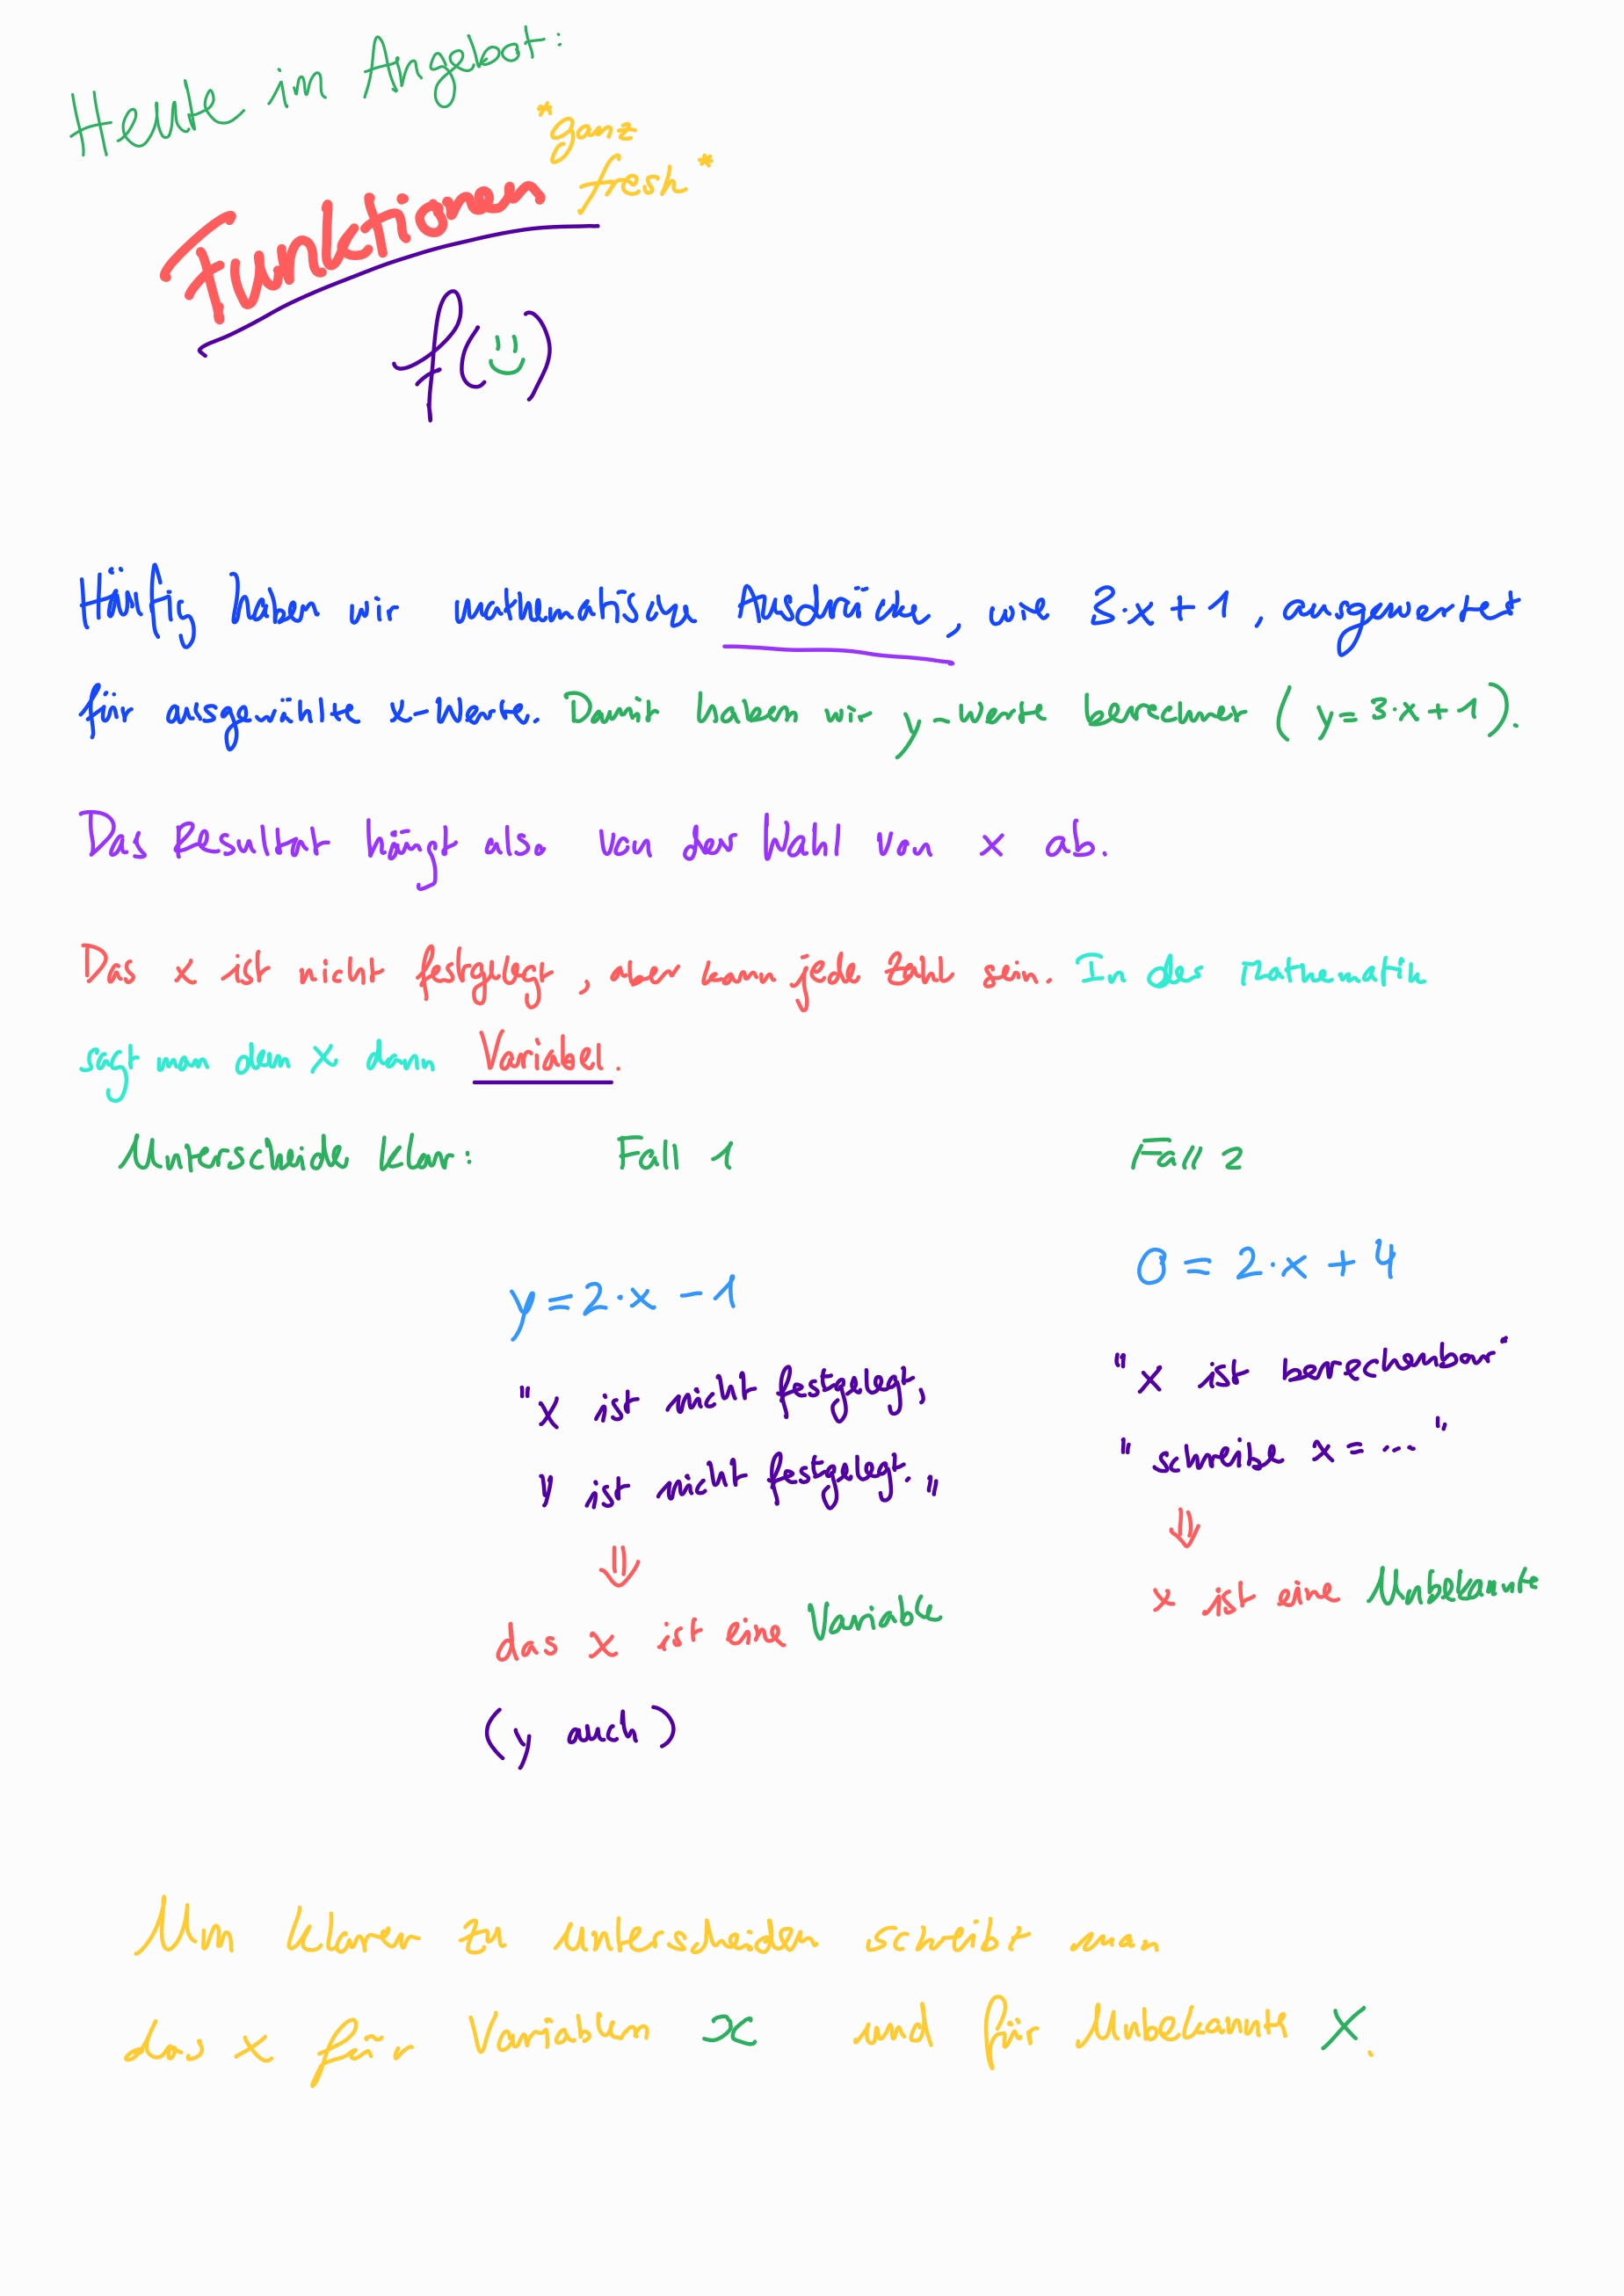 Heute in Angebot:
*ganz
fresh*
Funktionen
f(
)
Häufig haben wir mathematische Ausdrücke, wie 3·x+1, ausgewertet
für ausgewählte x-Werte. Damit haben wir y-Werte berechnet (y=3·x+1).
Das Resultat hängt also von der Wahl von x ab.
Das x ist nicht festgelegt, aber kann jede Zahl sein. In der Mathematik
sagt man dem x dann Variabel.
Unterscheide klar: Fall 1 Fall 2
y=2·x-1
0=2·x+4
"x ist nicht festgelegt,
y ist nicht festgelegt."
"x ist berechenbar"
"schreibe x=..."
⇓
⇓
das x ist eine Variable
x ist eine Unbekannte
(y auch)
Um klarer zu unterscheiden schreibt man
das x für Variablen x und für Unbekannte X.